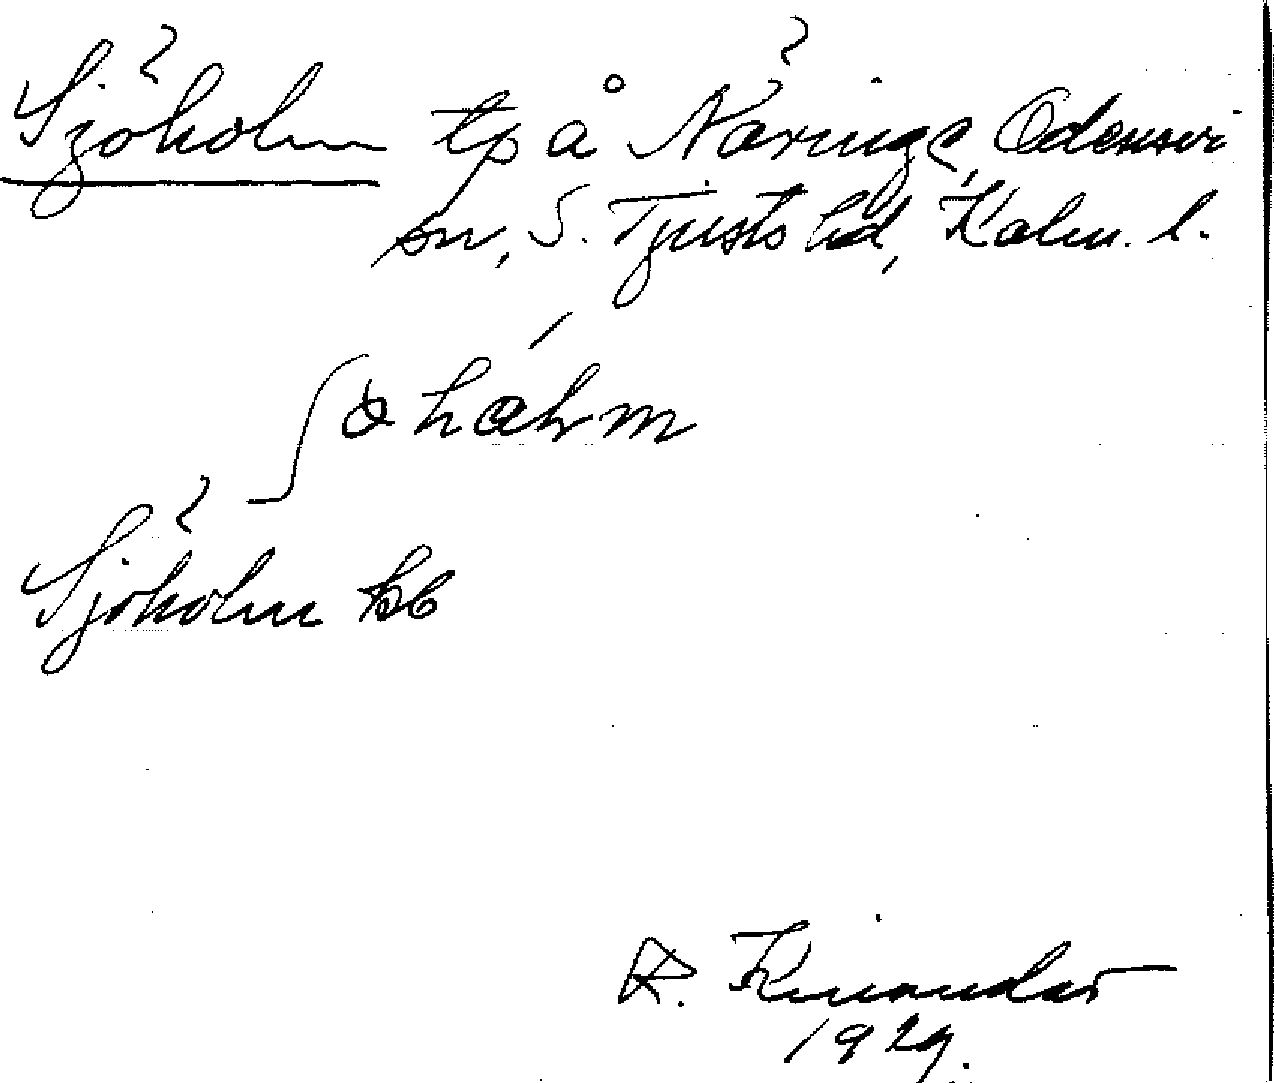 Sjöholm tp å Näringe, Odensvi
sn, S. Tjusts hd, Kalm. l.
ʃøhåĺm
Sjöholm kb
R. Kinander
1929.